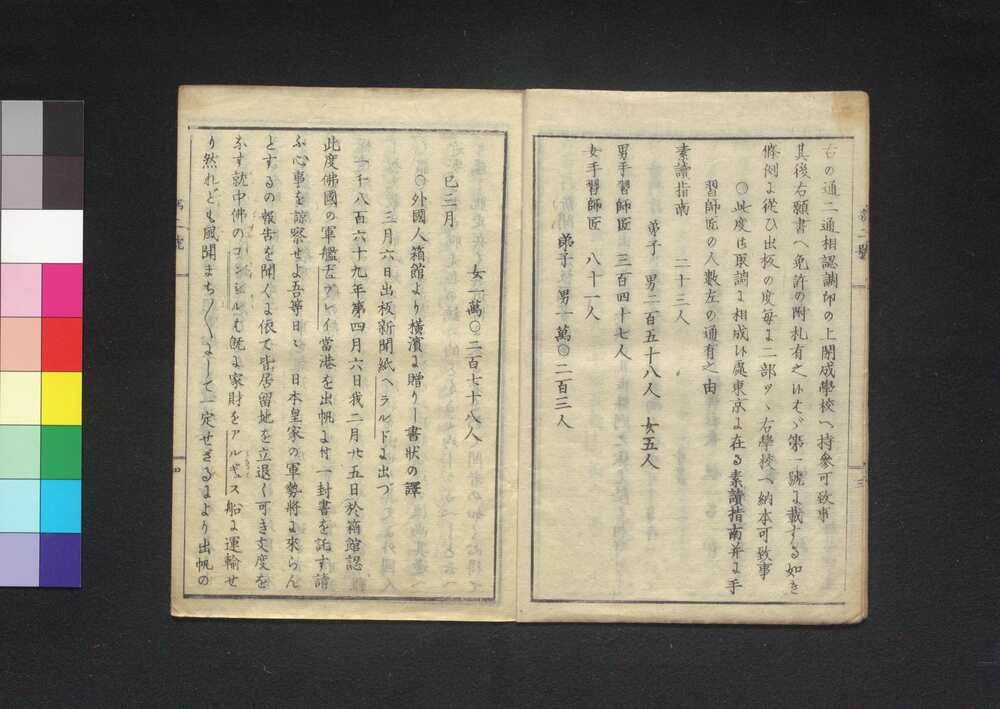 右の通二通相認調印の上開成學校へ持参可致事
其後右願書へ免許の附札有之候はゞ第一號に載する如き
條例に従ひ出板の度毎に二部ツヽ右學校へ納本可致事
○此度御取調に相成候處東京に在る素讀指南并に手
習師匠の人数左の通有之由
素讀指南 二十三人
弟子 男二百五十八人 女五人
男手習師匠 三百四十七人
女手習師匠 八十一人
弟子 男一萬○二百三人
女一萬○二百七十八人
巳三月
○外國人箱館より横濱に贈りし書状の譯
三月六日出板新聞紙ヘラルドに出づ
一千八百六十九年第四月六日我二月廿五日於箱館認
此度佛國の軍艦 當港を出帆に付一封書を託す請
ふ心事を諒察せよ吾等日々日本皇家の軍勢将に来らん
とするの報告を聞くに依て皆居留地を立退く可き支度を
なす就中佛のコンシュルも既に家財をアルビヲス船に運輸せ
り然れども風聞まち〳〵にして一定せざるにより出帆の